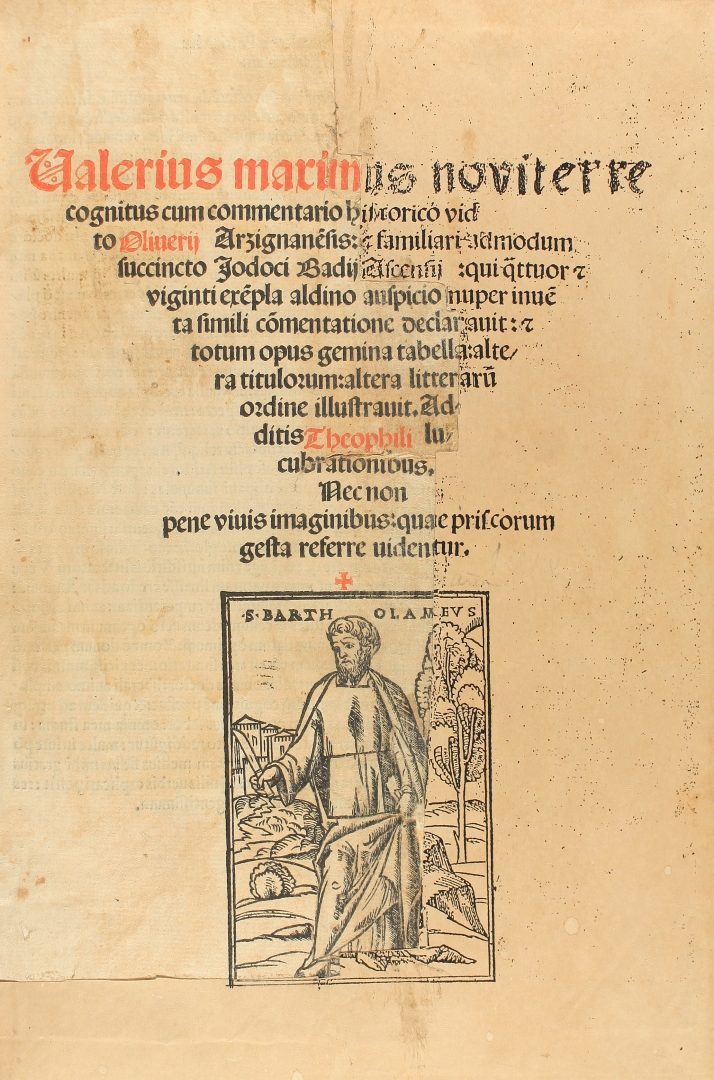 Valerius maximus noviter re
cognitus cum commentario historico vid
to Oliuerij Arzignanēsis: ⁊ familiari admodum
succincto Jodoci Badij Ascensij :qui q̄ttuor ⁊
viginti exēpla aldino auspicio nuper inuē
ta simili cōmentatione declarauit: ⁊
totum opus gemina tabella:alte/
ra titulorum:altera litterarū
ordine illustrauit. Ad
ditis Theophili lu/
cubrationibus.
Nec non
pene viuis imaginibus:quae priscorum
gesta referre uidentur.
·S·BARTHOLAMEVS